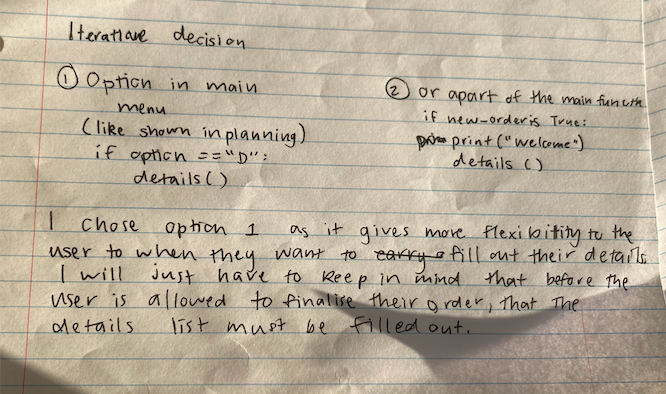 Iterative decision
① Option in main
menu
(like shown in planning)
if option =="D":
details()
② or apart of the main
if new-order is True:
print("welcome")
details ()
I chose option 1 as it gives more flexibility to the
user to when they want to fill out their details.
I will just have to keep in mind that before the
user is allowed to finalise their order, that the
details list must be filled out.